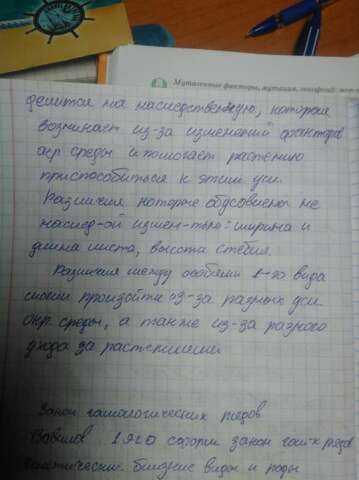 Мутагенные факторы, мутация, генофонд
делится на наследственную, которая
возникает из-за изменений факторов
окр. среды и помогает растению
приспособиться к этим усл.
Различия которые обусловлены не
наслед-ой измен-тью: ширина и
длина листа, высота стебля.
Различия между особями 1-го вида
могли произойти из-за разных усл
окр. среды, а также из-за разного
ухода за растениями.
Закон гомологических рядов
Вавилов 1920 сформ закон гом-х рядов
генетические близкие виды и роды